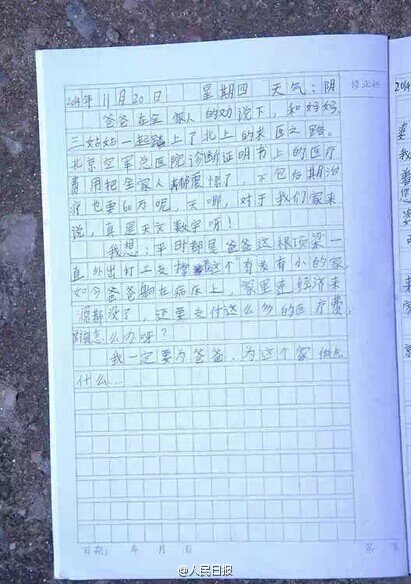 2014年11月20日 星期四 天气:阴
爸爸在全家人的劝说下,和妈妈、
三姑姑一起踏上了北上的求医之路。
北京空军总医院诊断证明书上的医疗
费用把全家人都震惊了,下包后期治
疗也要60万呢,天哪,对于我们家来
说,真是天文数字呀!
我想:平时都是爸爸这根顶梁一
直外出打工支撑着这个有老有小的家,
如今爸爸躺在病床上,家里连经济来
源都没了,还要支付这么多的医疗费,
怎么办呀?
我一定要为爸爸、为这个家做点
什么…
修正栏
2014
日期: 年 月 日
第 页
@人民日报